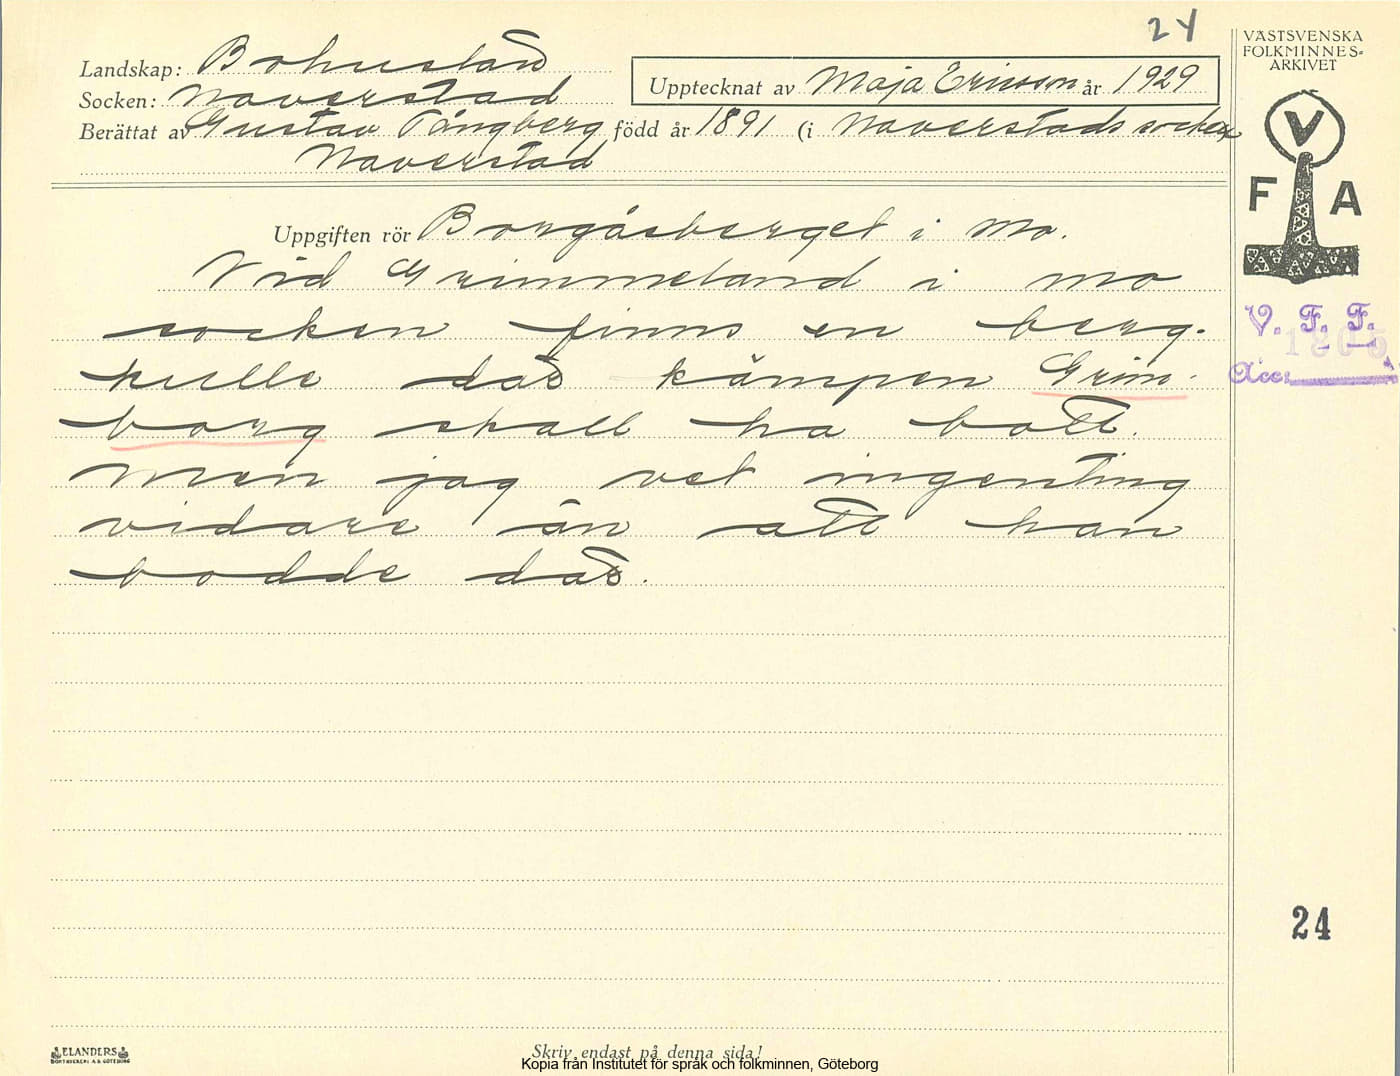 24
VÄSTSVENSKA
FOLKMINNES-
ARKIVET
Landskap: Bohuslän
Upptecknat av Maja Ericsson år 1929
Socken: Naverstad
Berättat av Gustav Tångberg född år 1891 (i Naverstads socken
Naverstad
V
F A
Uppgiften rör Borgåsberget i Mo.
Vid Grimmeland i Mo
socken finns en berg-
kulle där kämpen Grim-
borg skall ha bott.
Men jag vet ingenting
vidare än att han
bodde där.
V. F. F.
Acc:
24
ELANDERS
BOKTRYCKERI A.B. GÖTEBORG
Skriv endast på denna sida!
Kopia från Institutet för språk och folkminnen, Göteborg